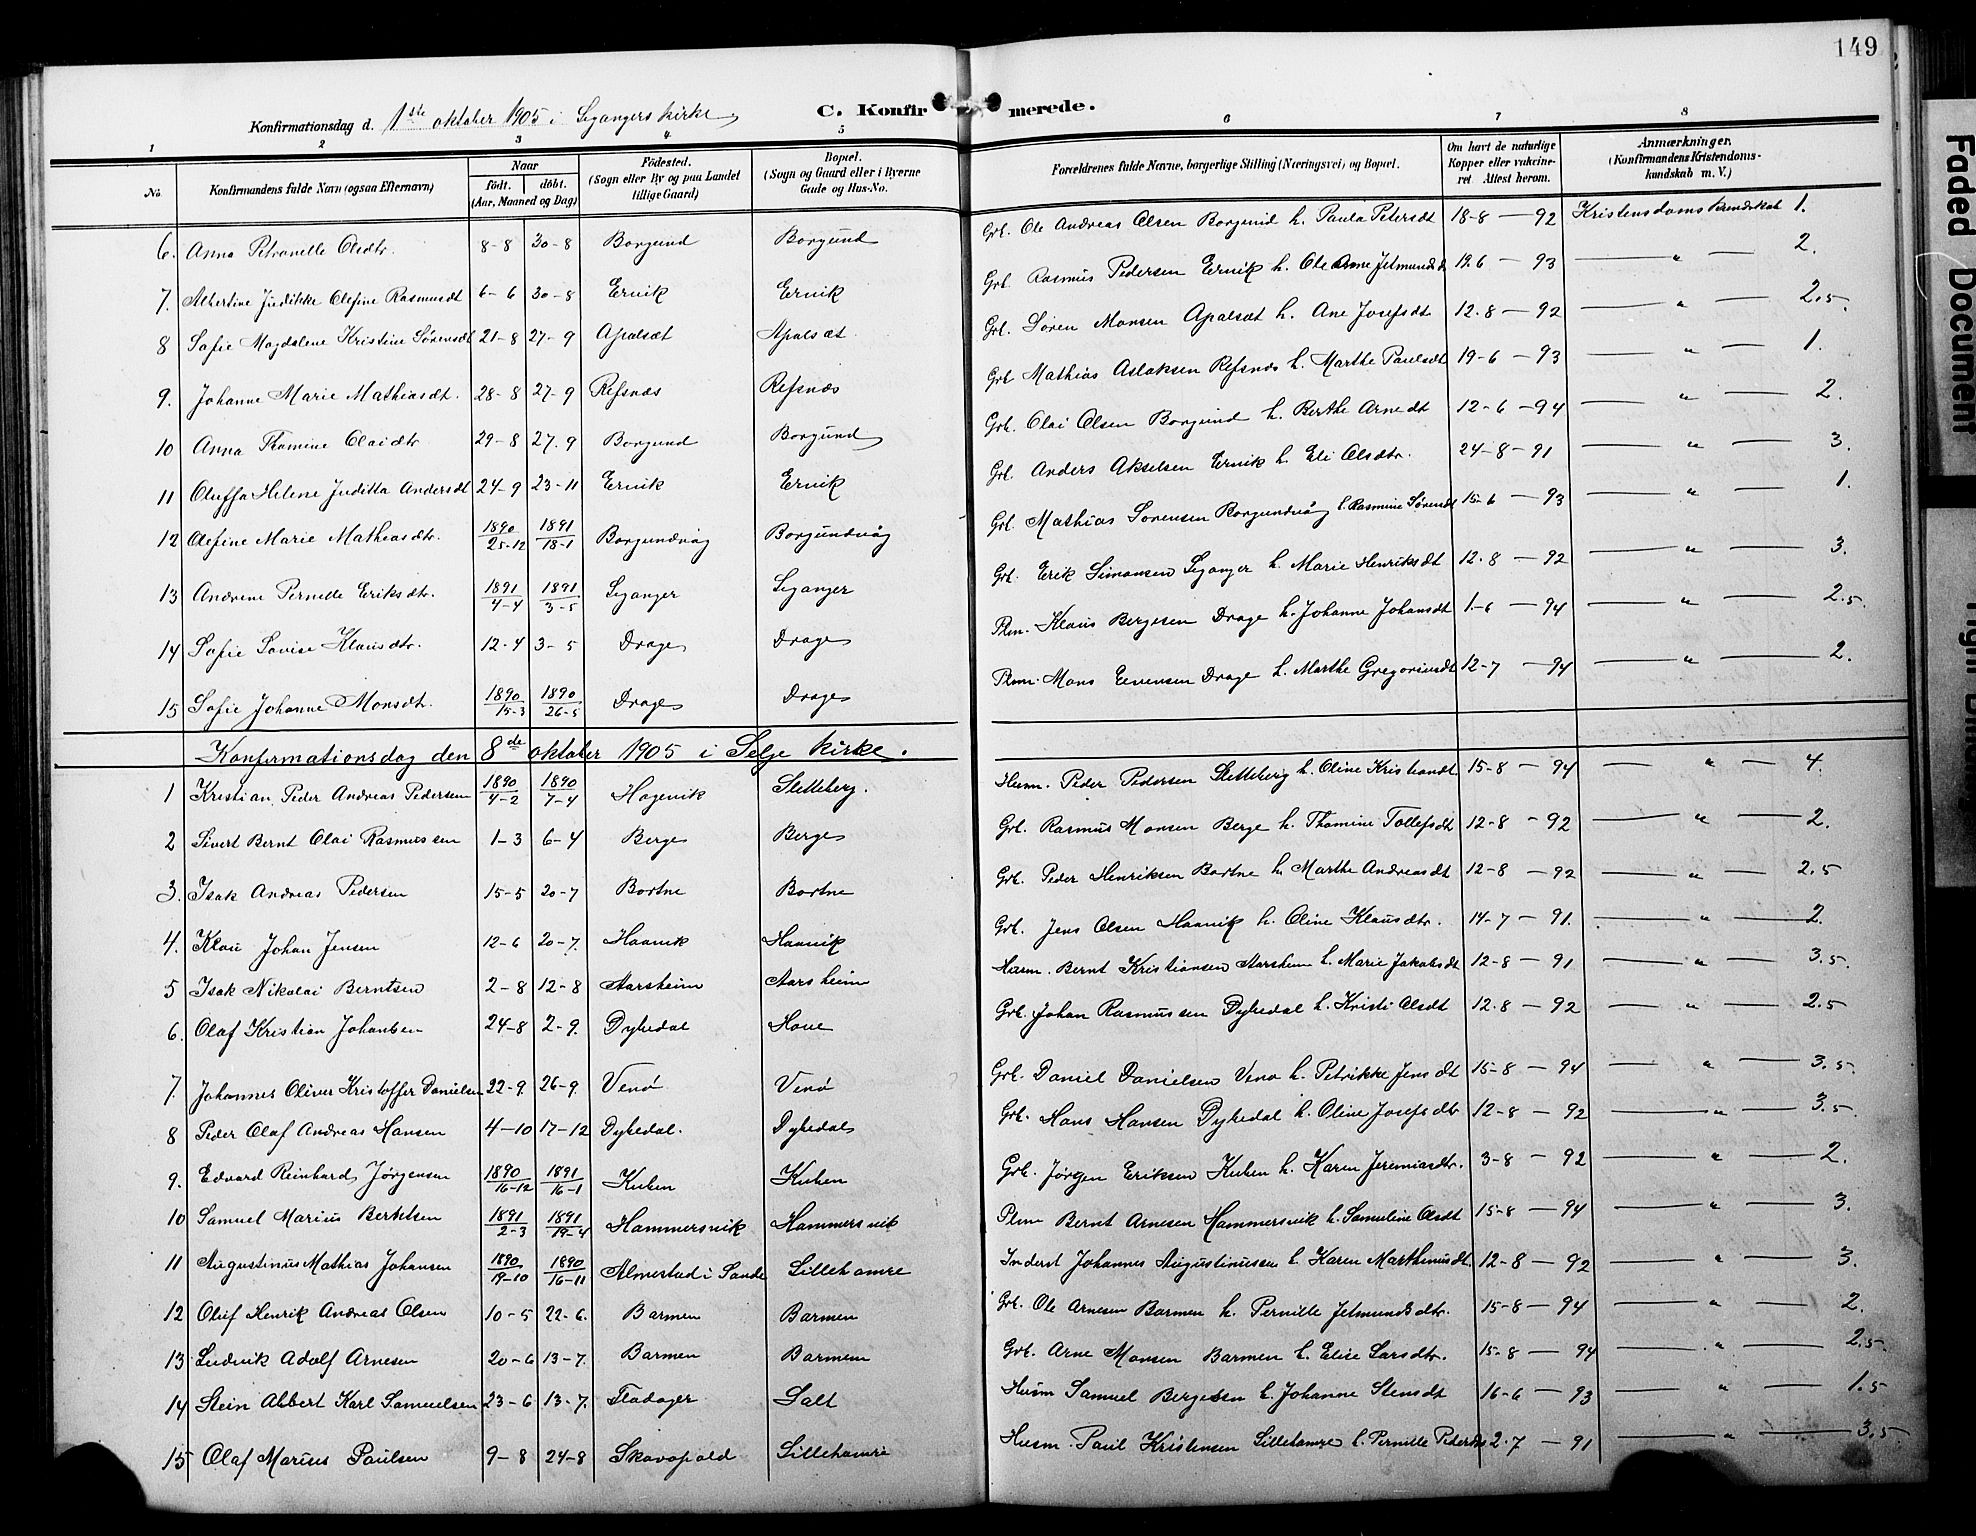 149
C. Konfirmerede.
Konfirmationsdag d. 1ste oktober 1905 i Leganger kirke
1 2 3 4 5 6 7 8
No. Konfirmandens fulde Navn (ogsaa Efternavn) Naar født. døbt. (Aar, Maaned og Dag) Fødested. (Sogn eller By og paa Landet tillige Gaard) Bopæl. (Sogn og Gaard eller i Byerne Gade og Hus-No. Forældrenes fulde Navne, borgerlige Stilling (Næringsvei) og Bopæl. Om havt de naturlige Kopper eller vakcineret Attest herom. Anmærkninger. (Konfirmandens Kristendomskundskab m. V.)
6. Anna Petronelle Olsdtr. 8-8 30-8 Borgund Borgund Grb. Ole Andreas Olsen Borgund h. Paula Petersdt 18-8 - 92 Kristendomskundskab 1.
7. Albertine Judikke Olefine Rasmusdt 6-6 30-8 Ervik Ervik Grb. Rasmus Pedersen Ervik h. Oleane Jetmundsdt 12.6 - 93 — " — 2.
8 Sofie Magdalene Kristine Sørensdt 21-8 27-9 Apalsæt Apalsæt Grb. Søren Monsen Apalsæt h. Ane Josefsdt 12-8 - 92 — " — 2.5
9. Johanne Marie Mathiasdt. 28-8 27-9 Refsnæs Refsnæs Grb Mathias Aslaksen Refsnæs h. Marthe Paulsdt 19-6 - 93 — " — 1.
10 Anna Thomine Olaidtr 29-8 27-9 Borgund Borgund Grb. Olai Olsen Borgund h. Berthe Arnedt 12-6 - 94 — " — 2.
11 Oluffa Helene Juditta Andersdt 24-9 23-11 Ervik Ervik Grb. Anders Akselsen Ervik h. Eli Olsdtr. 24-8 - 91 — " — 3.
12 Olefine Marie Mathiasdtr. 1890 25-12 1891 18-1 Borgundvåg Borgundvåg Grb. Mathias Sørensen Borgundvåg h. Rasmine Sørensdt 15-6 - 93 — " — 1.
13 Andrine Pernelle Eriksdtr. 1891 4-4 1891 3-5 Leganger Leganger Grb. Erik Simonsen Leganger h. Marie Henriksdt 12-8 - 92 — " — 3.
14 Sofie Lovise Klausdtr. 12-4 3-5 Drage Drage Plm. Klaus Bergesen Drage h. Johanne Johansdt 1-6 - 94 — " — 2.5.
15 Sofie Johanne Monsdt. 1890 15-3 1890 26-5 Drage Drage Plm. Mons Eivensen Drage h. Marthe Gregoriusdt 12-7 - 94 — " — 2.
Konfirmationsdag den 8de oktober 1905 i Selje kirke.
1 Kristian Peder Andreas Pedersen 1890 4-2 1890 7-4 Hagevik Sletteberg. Husm. Peder Pedersen Sletteberg h. Oline Kristiandt 15-8 - 94 — " — 4.
2 Sivert Bernt Olai Rasmussen 1-3 6-4 Berge Berge Grb. Rasmus Monsen Berge h. Thomine Tollefsdt 12-8 - 92 — " — 2.
3. Isak Andreas Pedersen 15-5 20-7 Bortne Bortne Grb. Peder Henriksen Bortne h. Marthe Andreasdt 12-8 - 92 — " — 2.5
4. Klau Johan Jensen 12-6 20-7. Haavik Haavik Grb. Jens Olsen Haavik h. Oline Klausdtr. 14-7 - 91. — " — 2.
5 Isak Nikolai Berntsen 2-8 12-8 Aarsheim Aarsheim Husm. Bernt Kristiansen Aarsheim h. Marie Jakobsdt 12-8 - 91 — " — 3.5.
6. Olaf Kristian Johansen 24-8 2-9. Dyhedal Hove Grb. Johan Rasmussen Dyhedal h. Kristi Olsdt 12-8 - 92 — " — 2.5
7. Johannes Oliver Kristoffer Danielsen 22-9. 26-9. Venø Venø Grb. Daniel Danielsen Venø h. Petrikke Jensdt 15-8 - 94 — " — 3.5.
8 Peder Olaf Andreas Hansen 4-10 17-12 Dyhedal. Dyhedal Grb. Hans Hansen Dyhedal h. Oline Josefsdtr 12-8 - 92 — " — 3.5
9. Edvard Reinhard Jørgensen 1890 16-12 1891 16-1 Kuben Kuben Grb. Jørgen Eriksen Kuben h. Karen Jeremiasdtr. 3-8 - 92 — " — 2.
10 Samuel Marius Berntsen 1891 2-3 1891 19-4 Hammersvik Hammersvik Plm Bernt Arnesen Hammersvik h. Samuline Olsdt 15-8 - 94 — " — 3.
11 Augustinus Mathias Johansen 1890 19-10 1890 16-11 Almestad i Sande Lillehamre Inderst Johannes Augustinussen h. Karen Marthinusdt. 12-8 - 92 — " — 3.
12 Oluf Henrik Andreas Olsen 10-5 22-6. Barmen Barmen Grb. Ole Arnesen Barmen h. Pernille Jetmundsdtr. 15-8 - 94 — " — 2.
13 Ludvik Adolf Arnesen 20-6 13-7. Barmen Barmen Grb. Arne Monsen Barmen h. Elise Larsdtr. 15-8 - 94 — " — 2.5.
14 Stein Albert Karl Samuelsen 23-6 13-7. Fladager Salt Husm Samuel Bergesen h. Johanne Stensdt 16-6 - 93 — " — 1.5
15 Olaf Marius Paulsen 9-8 24-8 Skavøpold Lillehamre Husm. Paul Kristensen Lillehamre h. Pernille Peders 2-7 - 91 — " — 3.5.
Faded Document